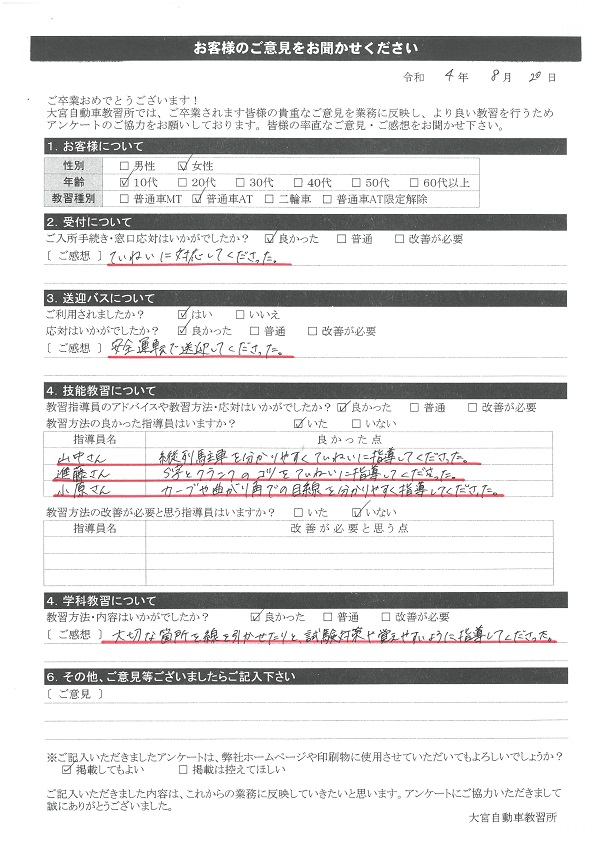 お客様のご意見をお聞かせください
令和 4 年 8 月 20 日
ご卒業おめでとうございます!
大宮自動車教習所では、ご卒業されます皆様の貴重なご意見を業務に反映し、より良い教習を行うため
アンケートのご協力をお願いしております。皆様の率直なご意見・ご感想をお聞かせ下さい。
1. お客様について
性別 □ 男性 ☑ 女性
年齢 ☑ 10代 □ 20代 □ 30代 □ 40代 □ 50代 □ 60代以上
教習種別 □ 普通車MT ☑ 普通車AT □ 二輪車 □ 普通車AT限定解除
2. 受付について
ご入所手続き・窓口応対はいかがでしたか? ☑ 良かった □ 普通 □ 改善が必要
〔 ご感想 〕 ていねいに対応してくださった。
3. 送迎バスについて
ご利用されましたか? ☑ はい □ いいえ
応対はいかがでしたか? ☑ 良かった □ 普通 □ 改善が必要
〔 ご感想 〕 安全運転で送迎してくださった。
4. 技能教習について
教習指導員のアドバイスや教習方法・応対はいかがでしたか? ☑ 良かった □ 普通 □ 改善が必要
教習方法の良かった指導員はいますか? ☑ いた □ いない
指導員名 良かった点
山中さん 縦列駐車を分かりやすくていねいに指導してくださった。
進藤さん S字とクランクのコツをていねいに指導してくださった。
小原さん カーブや曲がり角での目線を分かりやすく指導してくださった。
教習方法の改善が必要と思う指導員はいますか? □ いた ☑ いない
指導員名 改善が必要と思う点
4. 学科教習について
教習方法・内容はいかがでしたか? ☑ 良かった □ 普通 □ 改善が必要
〔 ご感想 〕 大切な箇所を線を引かせたりと、試験対策や覚えやすいように指導してくださった。
6. その他、ご意見等ございましたらご記入下さい
〔 ご意見 〕
※ご記入いただきましたアンケートは、弊社ホームページや印刷物に使用させていただいてもよろしいでしょうか?
☑ 掲載してもよい □ 掲載は控えてほしい
ご記入いただきました内容は、これからの業務に反映していきたいと思います。アンケートにご協力いただきまして
誠にありがとうございました。
大宮自動車教習所